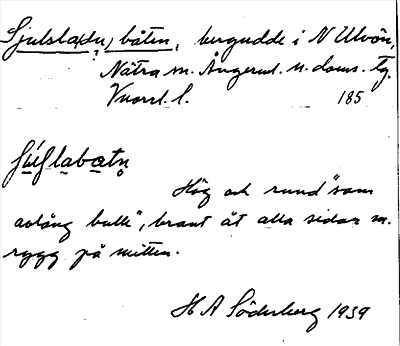 Sjulsta(du)båten, bergudde i N Ulvön,
?
Nätra sn. Ångerml. n. doms. tg.
Vnorrl. l. 185
Höğ och rund "som
avlång bulle", brant åt alla sidor m.
rygg på mitten.
H A Söderberg 1939